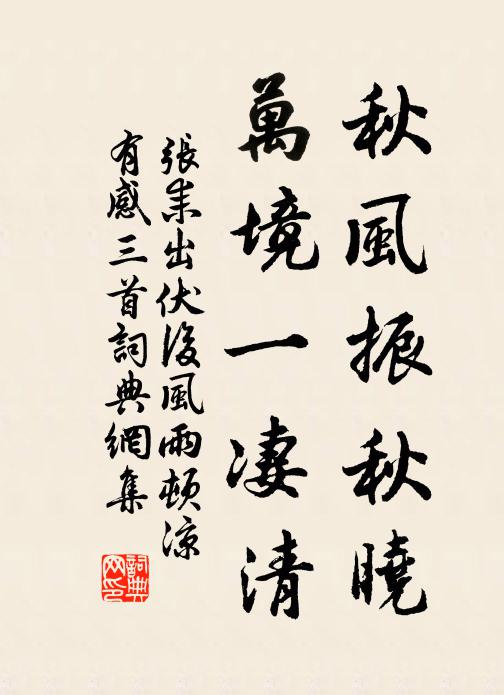 秋風振秋曉
萬境一凄清
張耒出伏後風雨頓涼
有感三首詞典網集
詞典
网印